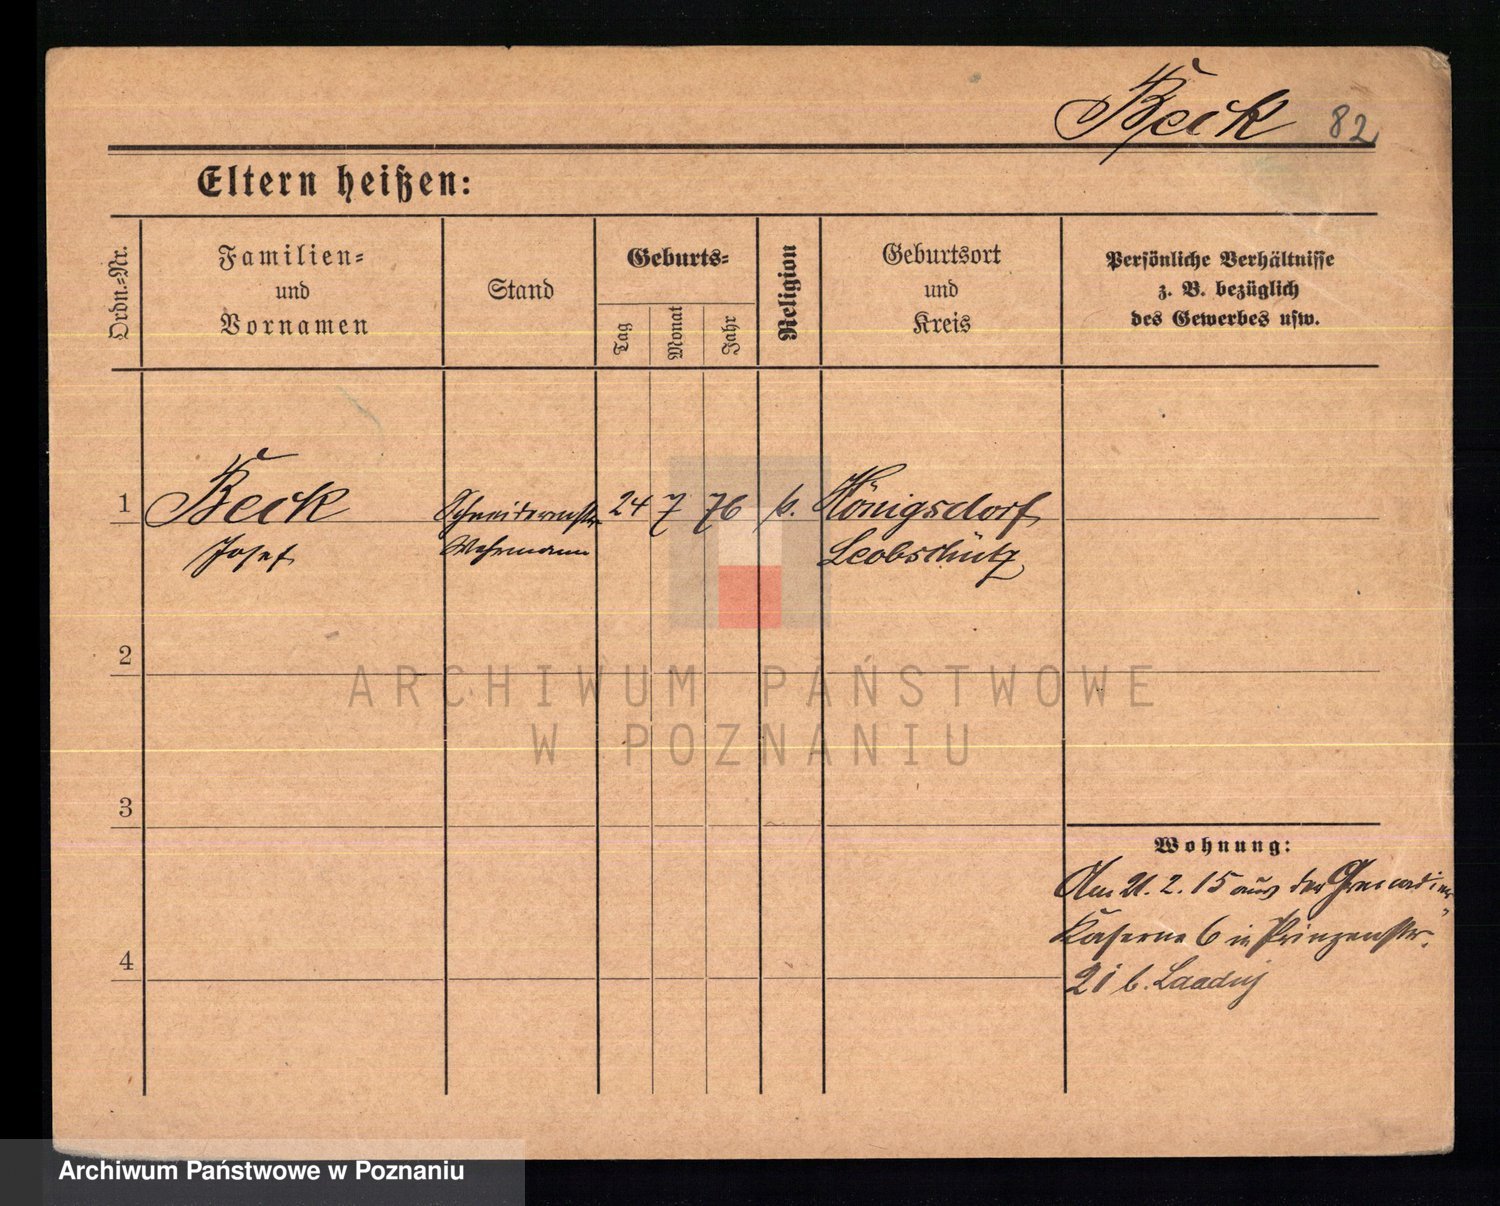 Beck 82
Eltern heißen:
Ordn.=Nr.
Familien=
und
Vornamen
Stand
Geburts=
Tag
Monat
Jahr
Religion
Geburtsort
und
Kreis
Persönliche Verhältnisse
z. B. bezüglich
des Gewerbes usw.
1 Beck Schneidermstr 24 7 76 k. Königsdorf
Josef Wehrmann Leobschütz
2
3
4
Wohnung:
Am 21. 2. 15 aus der Grenadier
Kaserne 6 in Prinzenstr.
21 b.
ARCHIWUM PAŃSTWOWE
W POZNANIU
Archiwum Państwowe w Poznaniu